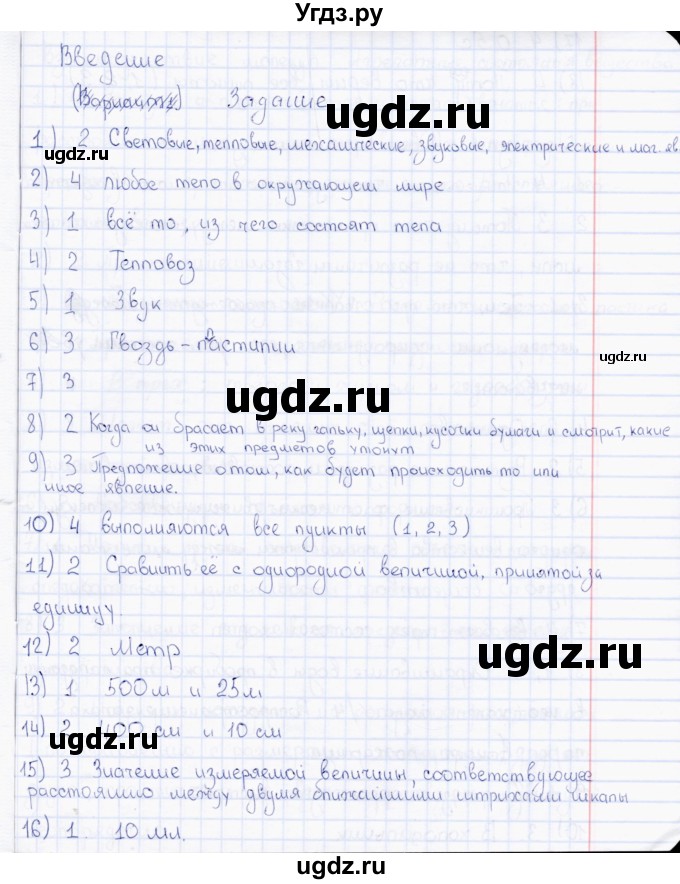 Угдз.ру
Введение
Задание
ugdz.ru
1) 2 Световые, тепловые, механические, звуковые, электрические и маг. яв.
ugdz.ru
2) 4 любое тело в окружающем мире
3) 1 всё то, из чего состоят тела
4) 2 Тепловоз
ugdz.ru
5) 1 Звук
6) 3 Гвоздь - пластилин
ugdz.ru
7) 3
ugdz.ru
8) 2 Когда он брасает в реку гальку, щепки, кусочки бумаги и смотрит, какие
из этих предметов утонут
9) 3 Предложение о том, как будет происходить то или
иное явление.
10) 4 выполняются все пункты (1, 2, 3)
11) 2 Сравнить её с однородной величиной, принятой за
единицу
12) 2 Метр
ugdz.ru
13) 1 500м и 25м
14) 2 400 см и 10 см
ugdz.ru
15) 3 Значение измеряемой величины, соответствующее
расстоянию между двумя ближайшими штрихами шкалы
16) 1. 10 мл.
ugdz.ru
ugdz.ru